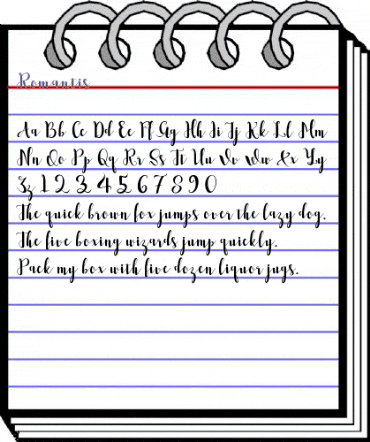 Romantis
Aa Bb Cc Dd Ee Ff Gg Hh Ii Jj Kk Ll Mm
Nn Oo Pp Qq Rr Ss Tt Uu Vv Ww Xx Yy
Zz 1 2 3 4 5 6 7 8 9 0
The quick brown fox jumps over the lazy dog.
The five boxing wizards jump quickly.
Pack my box with five dozen liquor jugs.